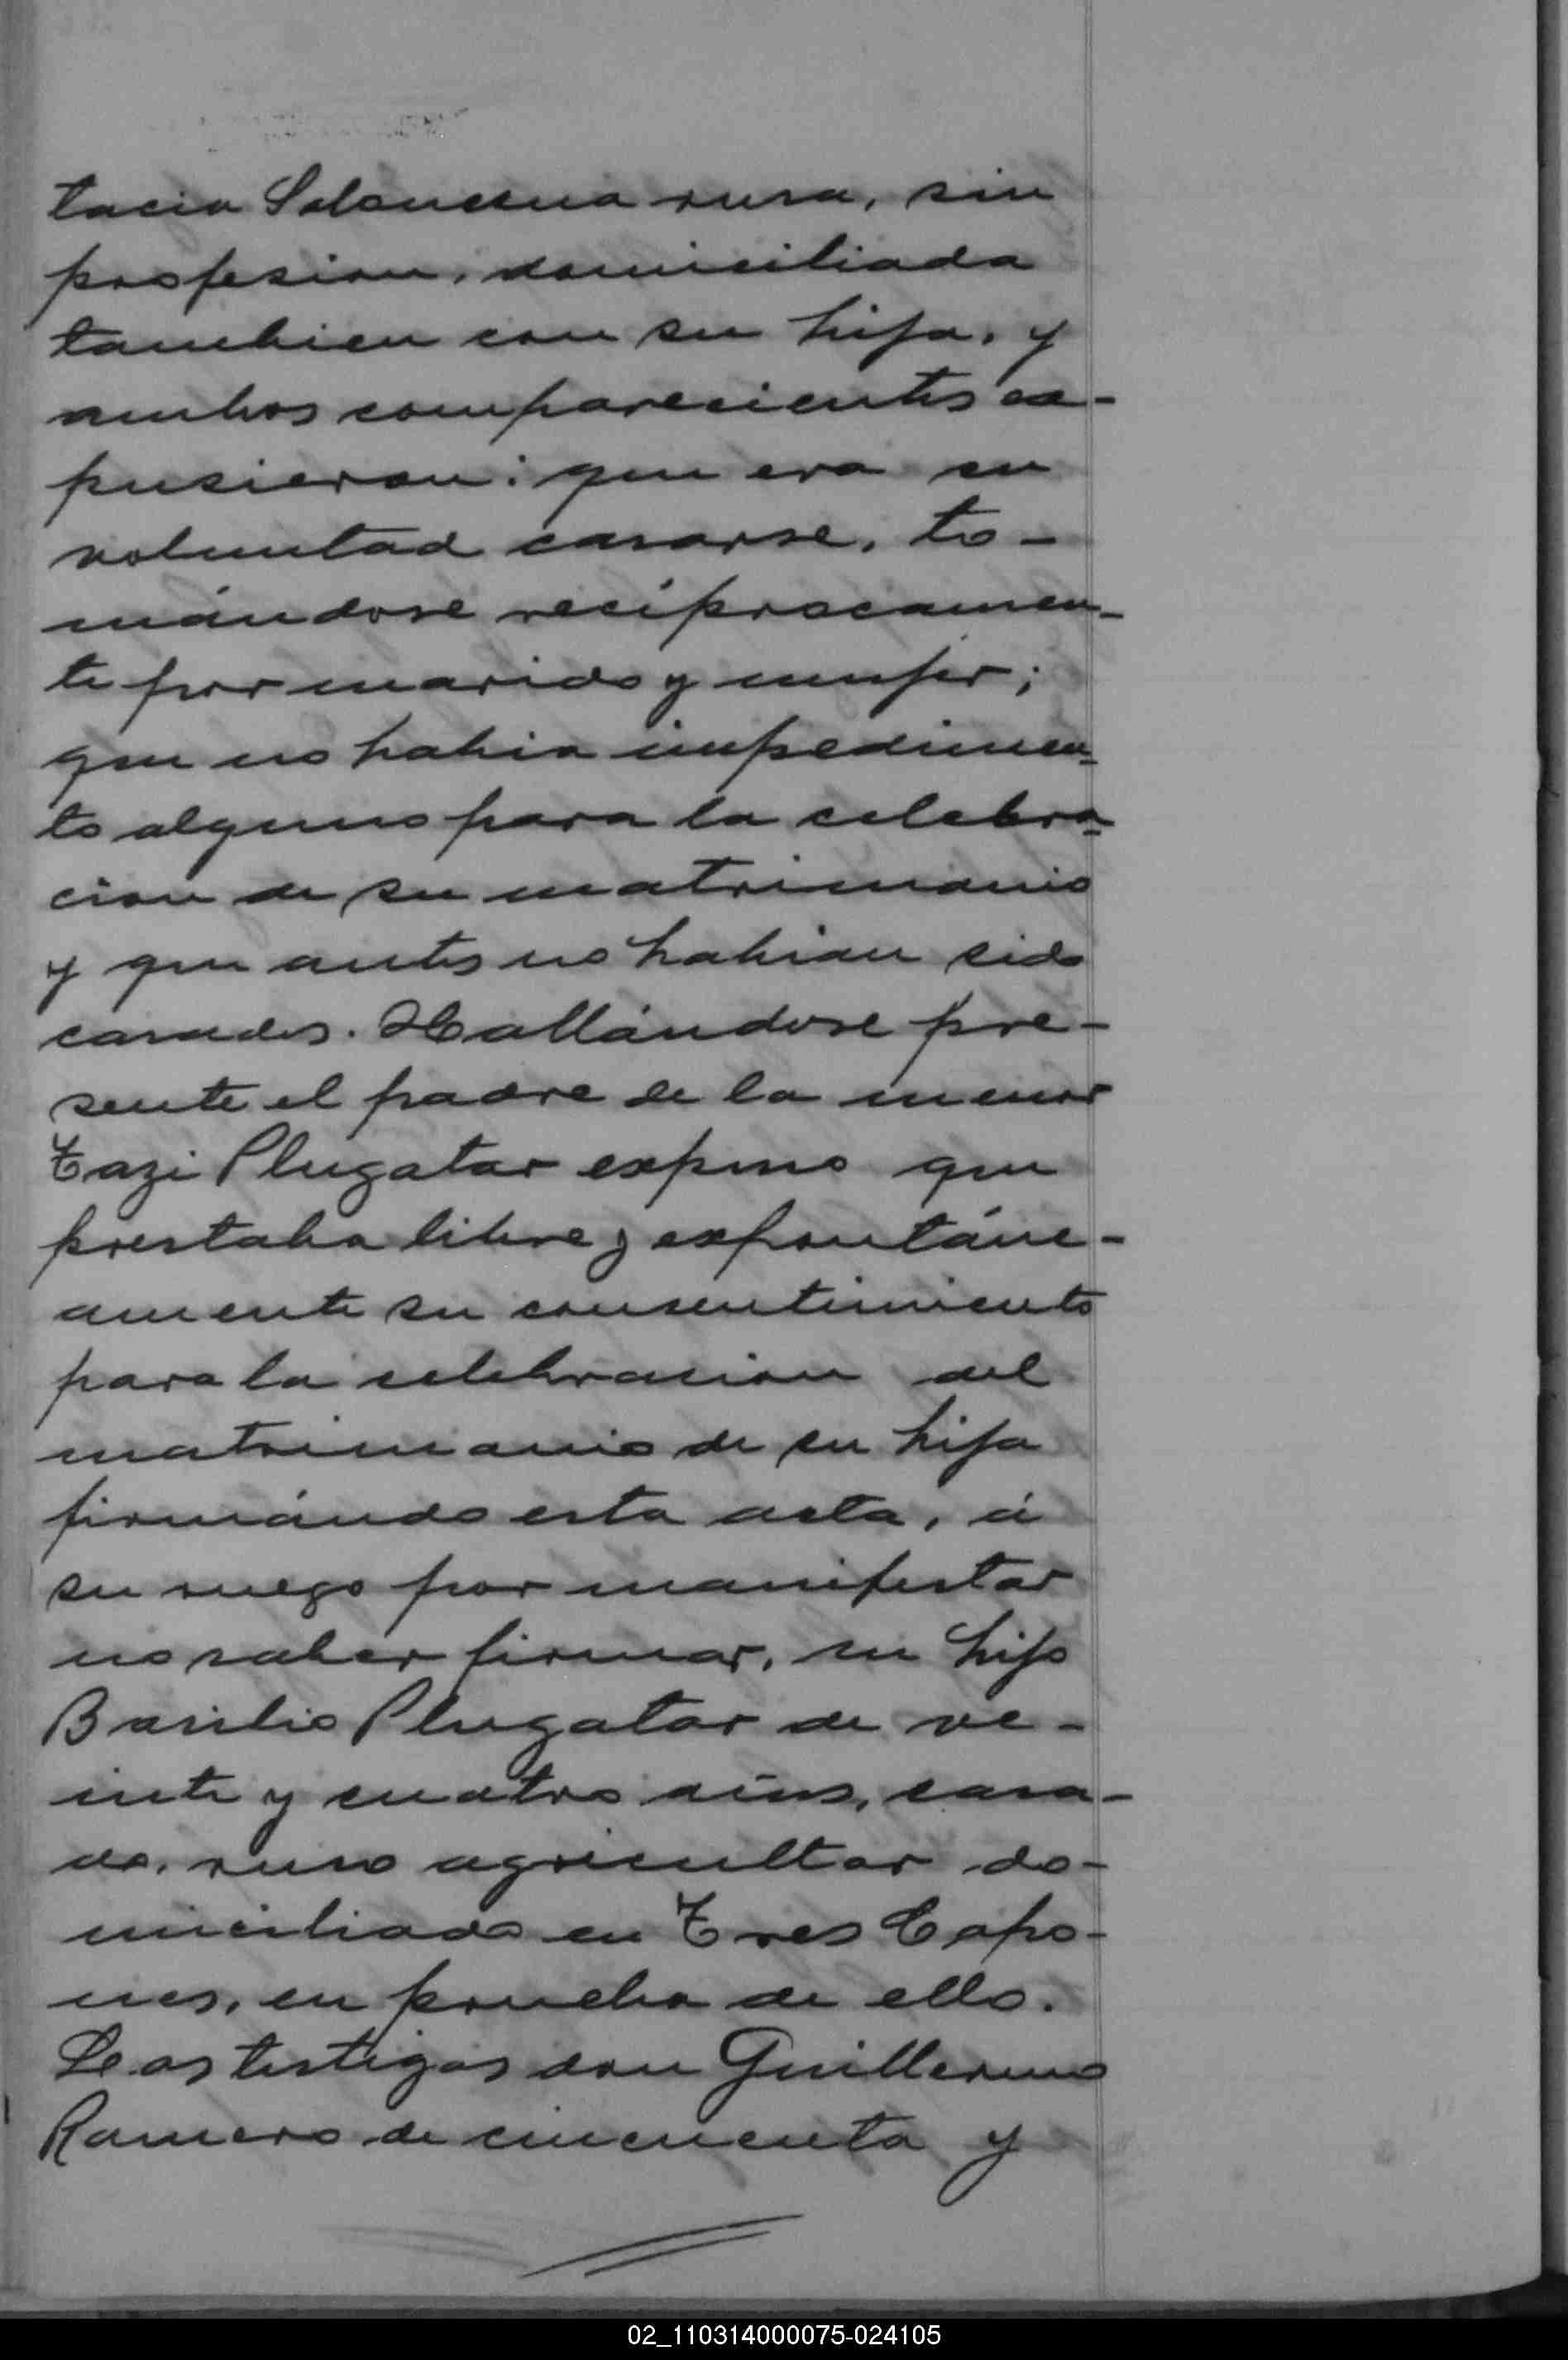 tacia Solonesna rusa, sin
profesion, domiciliada
tambien con su hija, y
ambos comparecientes ex-
pusieron: que era su
voluntad casarse, to-
mándose recíprocamen-
te por marido y mujer;
que no habia impedimen-
to alguno para la celebra-
cion de su matrimonio
y que antes no habian sido
casados. Hallándose pre-
sente el padre de la menor
Tazi Plugatar expuso que
prestaba libre y expontáne-
amente su consentimiento
para la celebracion del
matrimonio de su hija
firmándo esta acta, á
su ruego por manifestar
no saber firmar, su hijo
Basilio Plugatar de ve-
inte y cuatro años, casa-
do, ruso agricultor do-
miciliado en Tres Capo-
nes, en prueba de ello.
Los testigos don Guillermo
Romero de cincuenta y
02_110314000075-024105